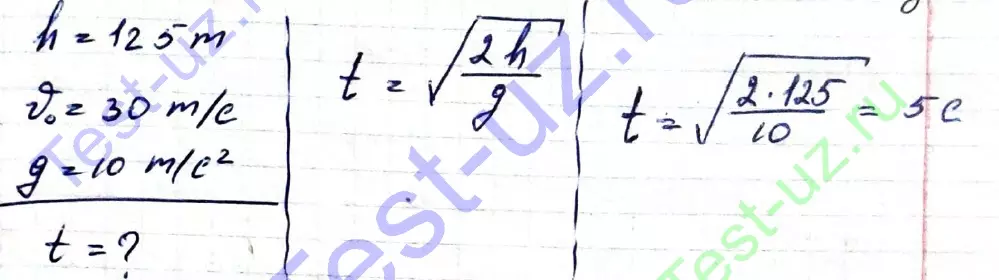 h = 125 m
v₀ = 30 m/c
g = 10 m/c²
t = ?
t = √(2h/g)
t = √(2·125/10) = 5 c
Test-uz.ru
Test-uz.ru
Test-uz.ru